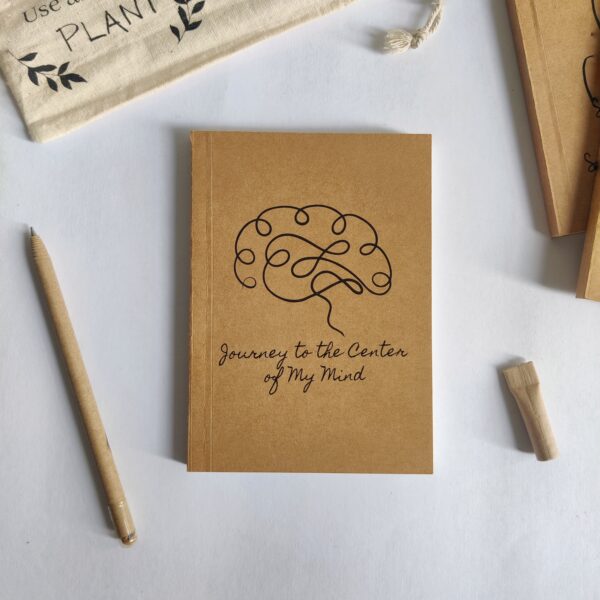 Use a
PLANT
Journey to the Center
of My Mind